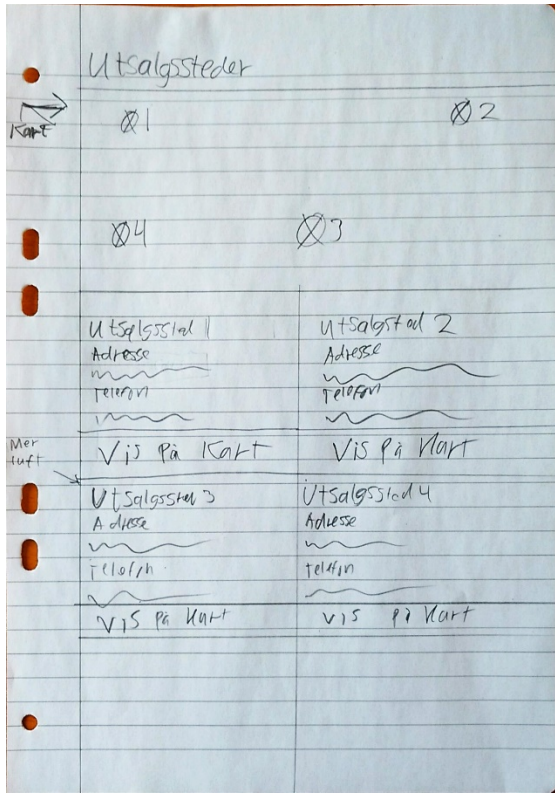 Utsalgssteder
Kart
1
2
4
3
Utsalgssted 1
Adresse
Telefon
Vis på Kart
Utsalgstad 2
Adresse
Telefon
Vis på Kart
Mer
luft
Utsalgssted 3
Adresse
Telefon
Vis på Kart
Utsalgssted 4
Adresse
Telefon
Vis på Kart